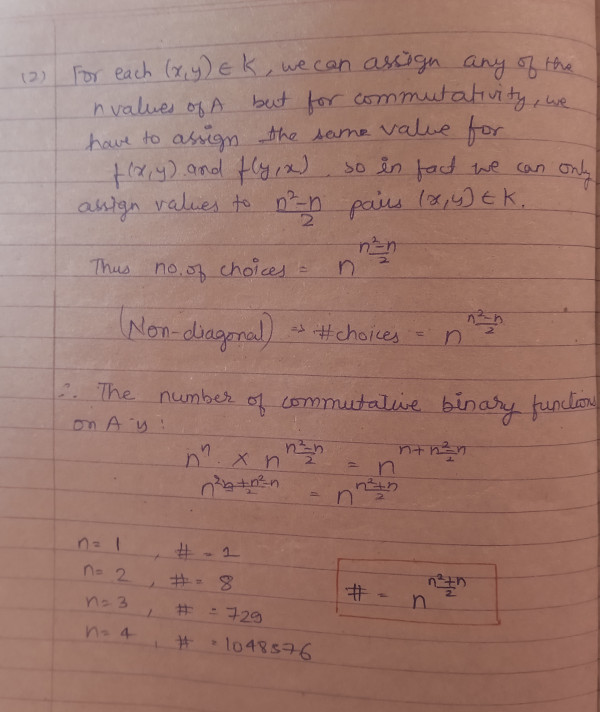 (2) For each (x,y) ∈ K, we can assign any of the
n values of A but for commutativity, we
have to assign the same value for
f(x,y) and f(y,x), so in fact we can only
assign values to (n²-n)/2 pairs (x,y) ∈ K.
Thus no. of choices = n^((n²-n)/2)
(Non-diagonal) ⇒ #choices = n^((n²-n)/2)
∴ The number of commutative binary function
on A is:
n^n × n^((n²-n)/2) = n^(n+(n²-n)/2)
n^((2n+n²-n)/2) = n^((n²+n)/2)
n=1, # = 1
n=2, # = 8
n=3, # = 729
n=4, # = 1048576
# = n^((n²+n)/2)